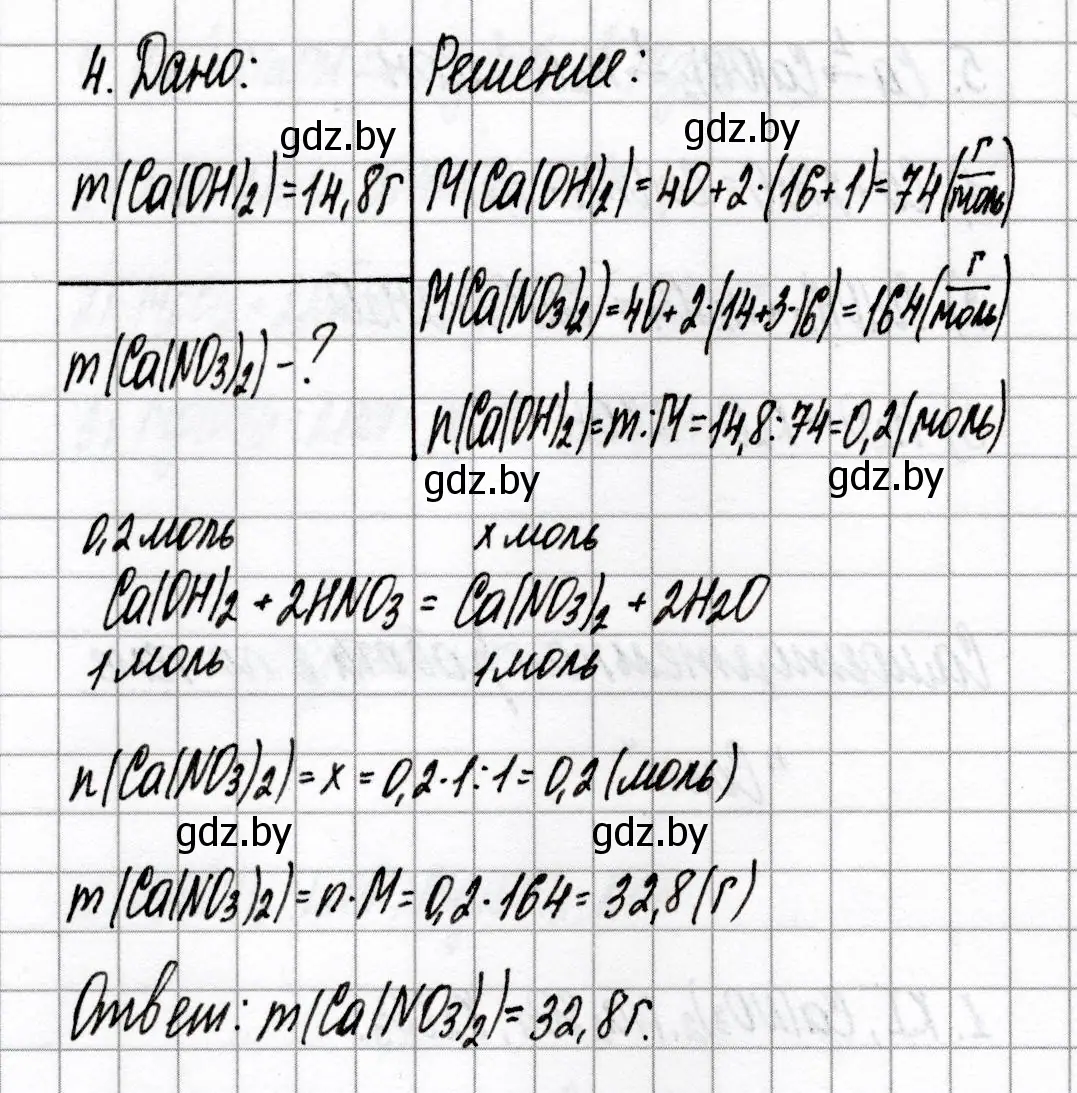 4. Дано:
Решение:
gdz.by
gdz.by
m(Ca(OH)2)=14,8г
M(Ca(OH)2)=40+2·(16+1)=74(г/моль)
M(Ca(NO3)2)=40+2·(14+3·16)=164(г/моль)
m(Ca(NO3)2)-?
n(Ca(OH)2)=m:M=14,8:74=0,2(моль)
gdz.by
gdz.by
0,2 моль
x моль
Ca(OH)2 + 2HNO3 = Ca(NO3)2 + 2H2O
1 моль
1 моль
n(Ca(NO3)2)=x=0,2·1:1=0,2(моль)
gdz.by
gdz.by
m(Ca(NO3)2)=n·M=0,2·164=32,8(г)
Ответ: m(Ca(NO3)2)=32,8г.